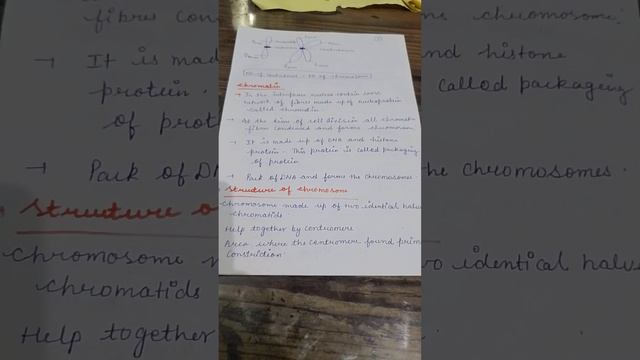 [No of centromere = No of chromosome]
Chromatin
→ In the interphase nucleus contain loose
network of fibres made up of nucleoprotein
called chromatin
→ At the time of cell division all chromatin
fibres condensed and forms chromosom
→ It is made up of DNA and histone
protein. This protein is called packaging
of protein
→ Pack of DNA and forms the chromosomes.
Structure of chromosome
chromosome made up of two identical halves
chromatids
Help together by centromere
Area where the centromere found prim
constriction